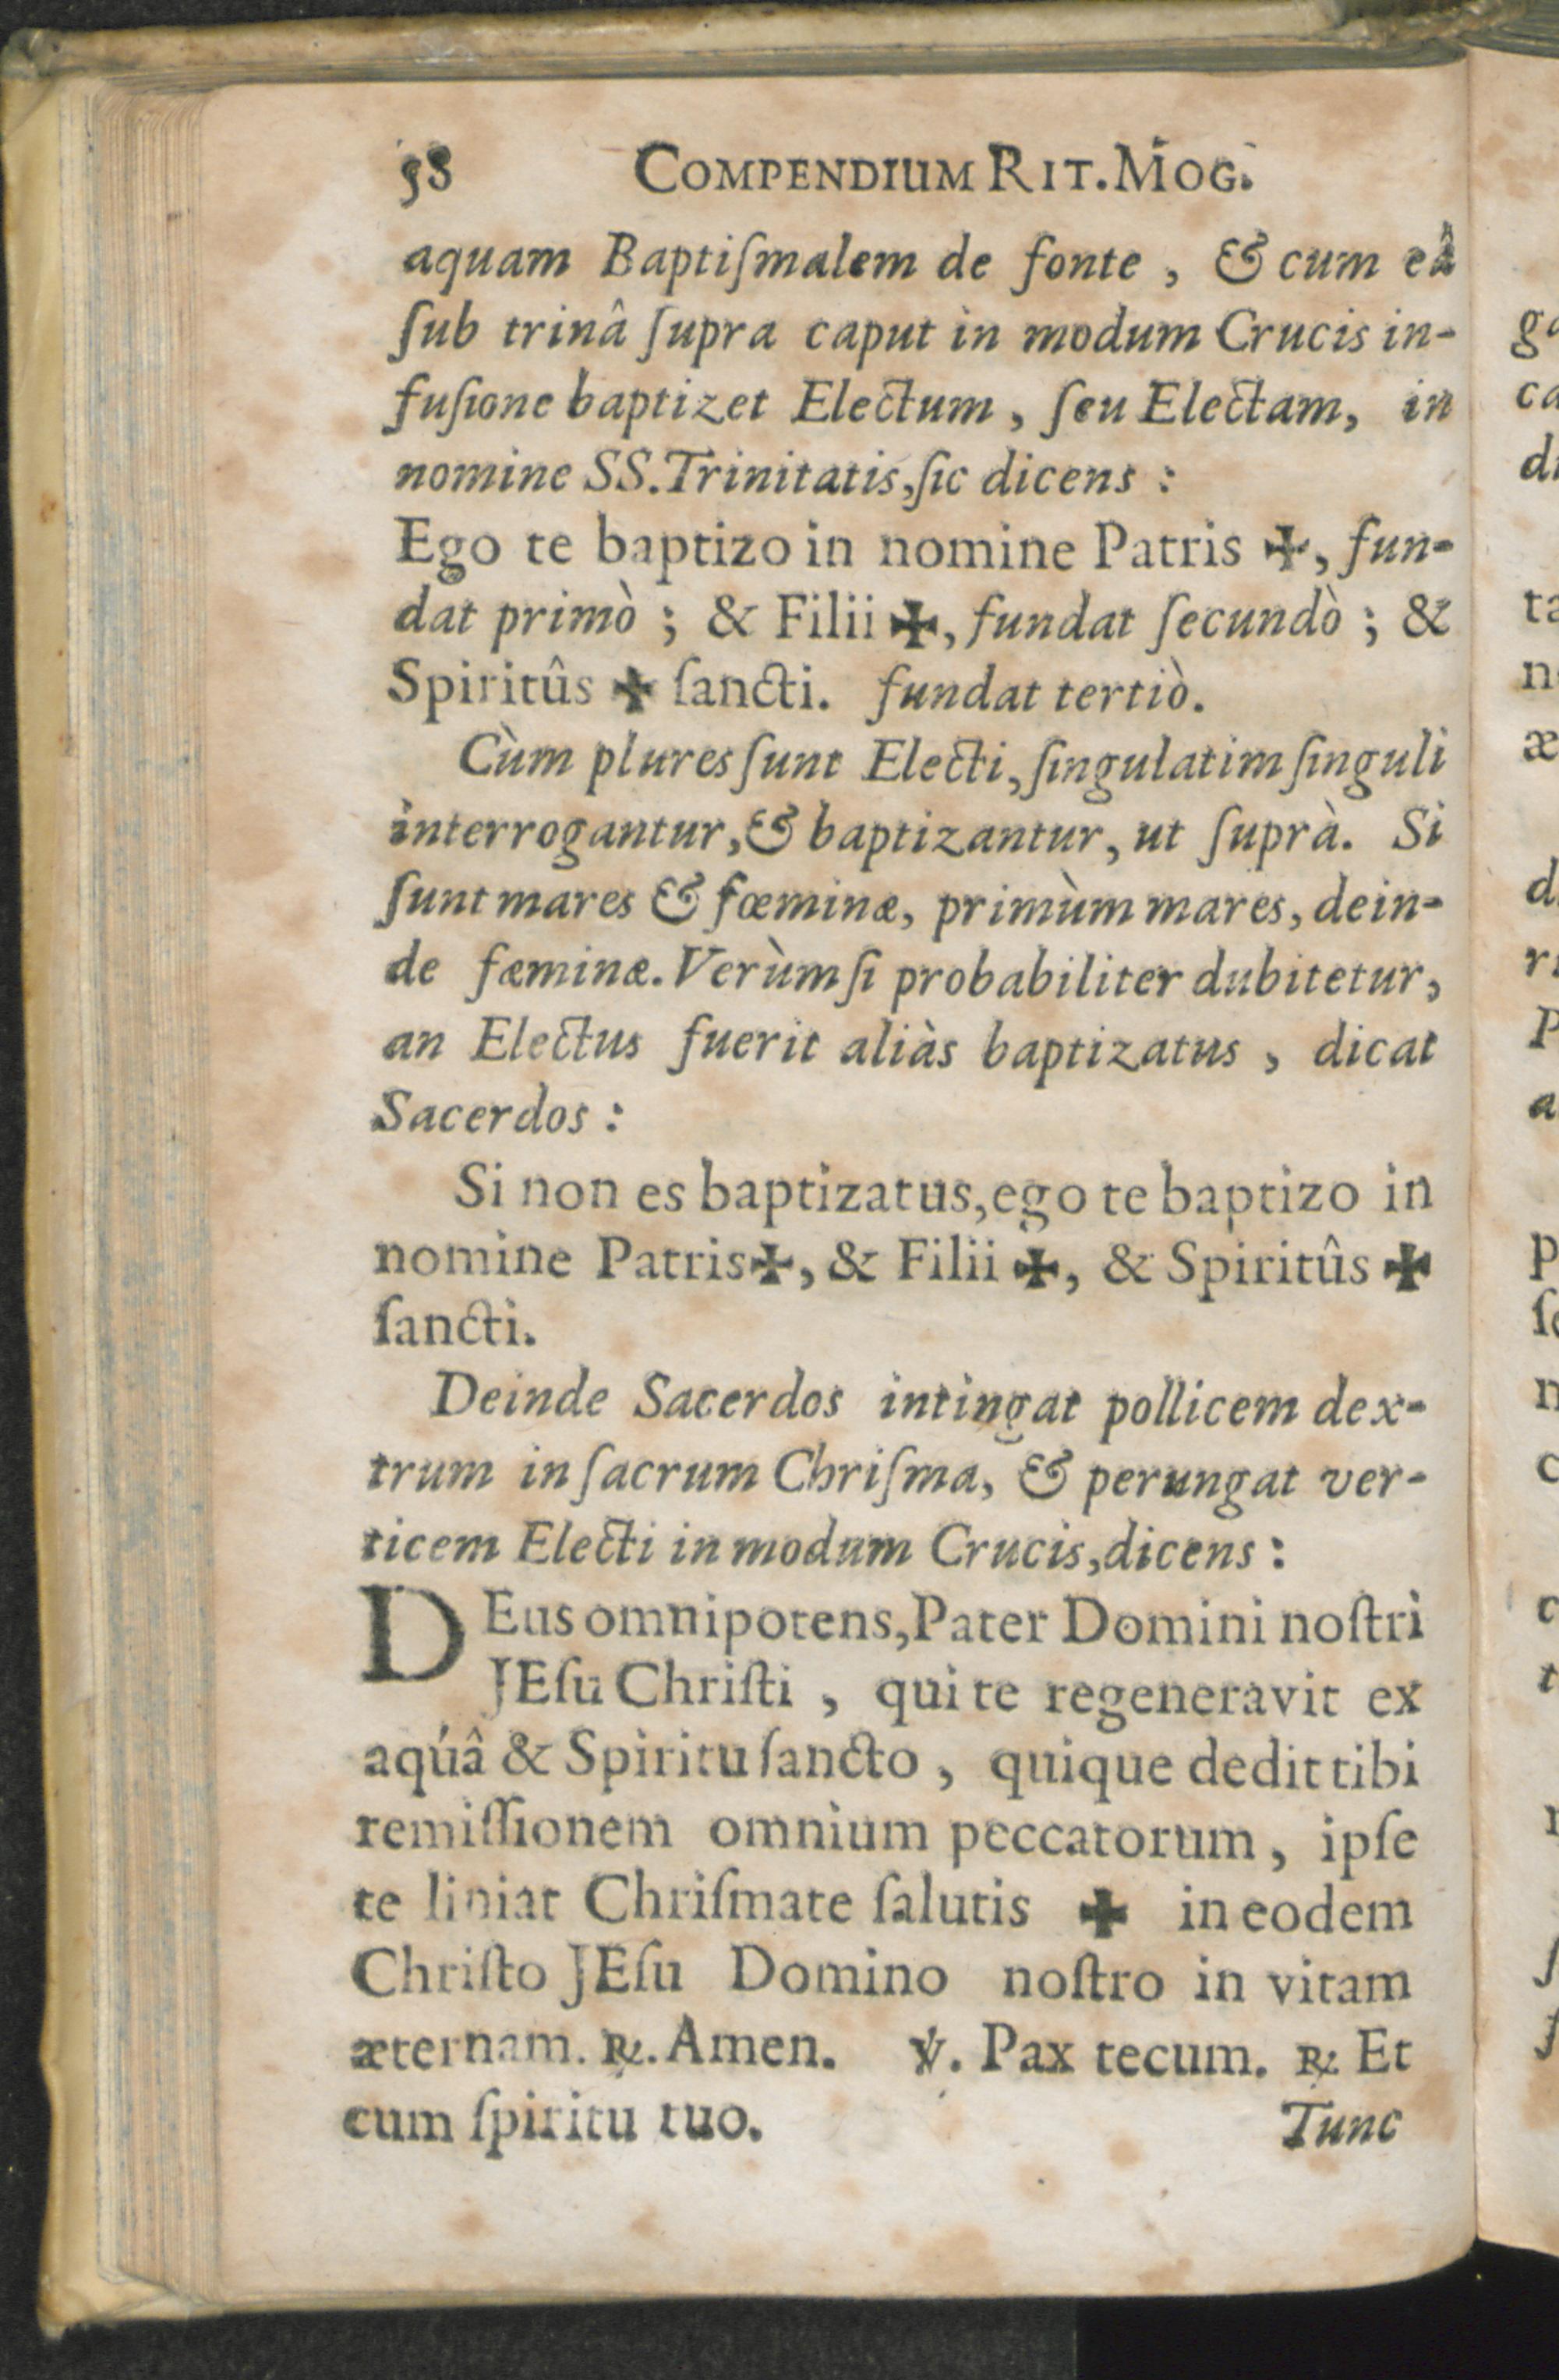 58 COMPENDIUM RIT. MOG.
aquam Baptiſmalem de fonte, & cum eâ
ſub trinâ ſupra caput in modum Crucis in-
fuſione baptizet Electum, ſeu Electam, in
nomine SS. Trinitatis, ſic dicens:
Ego te baptizo in nomine Patris ✠, fun-
dat primò; & Filii ✠, fundat ſecundò; &
Spiritûs ✠ ſancti. fundat tertiò.
Cùm plures ſunt Electi, ſingulatim ſinguli
interrogantur, & baptizantur, ut ſuprà. Si
ſunt mares & fœminæ, primùm mares, dein-
de fæminæ. Verùm ſi probabiliter dubitetur,
an Electus fuerit aliàs baptizatus, dicat
Sacerdos:
Si non es baptizatus, ego te baptizo in
nomine Patris ✠, & Filii ✠, & Spiritûs ✠
ſancti.
Deinde Sacerdos intingat pollicem dex-
trum in ſacrum Chriſma, & perungat ver-
ticem Electi in modum Crucis, dicens:
DEus omnipotens, Pater Domini noſtri
JEſu Chriſti, qui te regeneravit ex
aquâ & Spiritu ſancto, quique dedit tibi
remiſſionem omnium peccatorum, ipſe
te liniat Chriſmate ſalutis ✠ in eodem
Chriſto JEſu Domino noſtro in vitam
æternam. ℟. Amen. ℣. Pax tecum. ℟ Et
cum ſpiritu tuo. Tunc